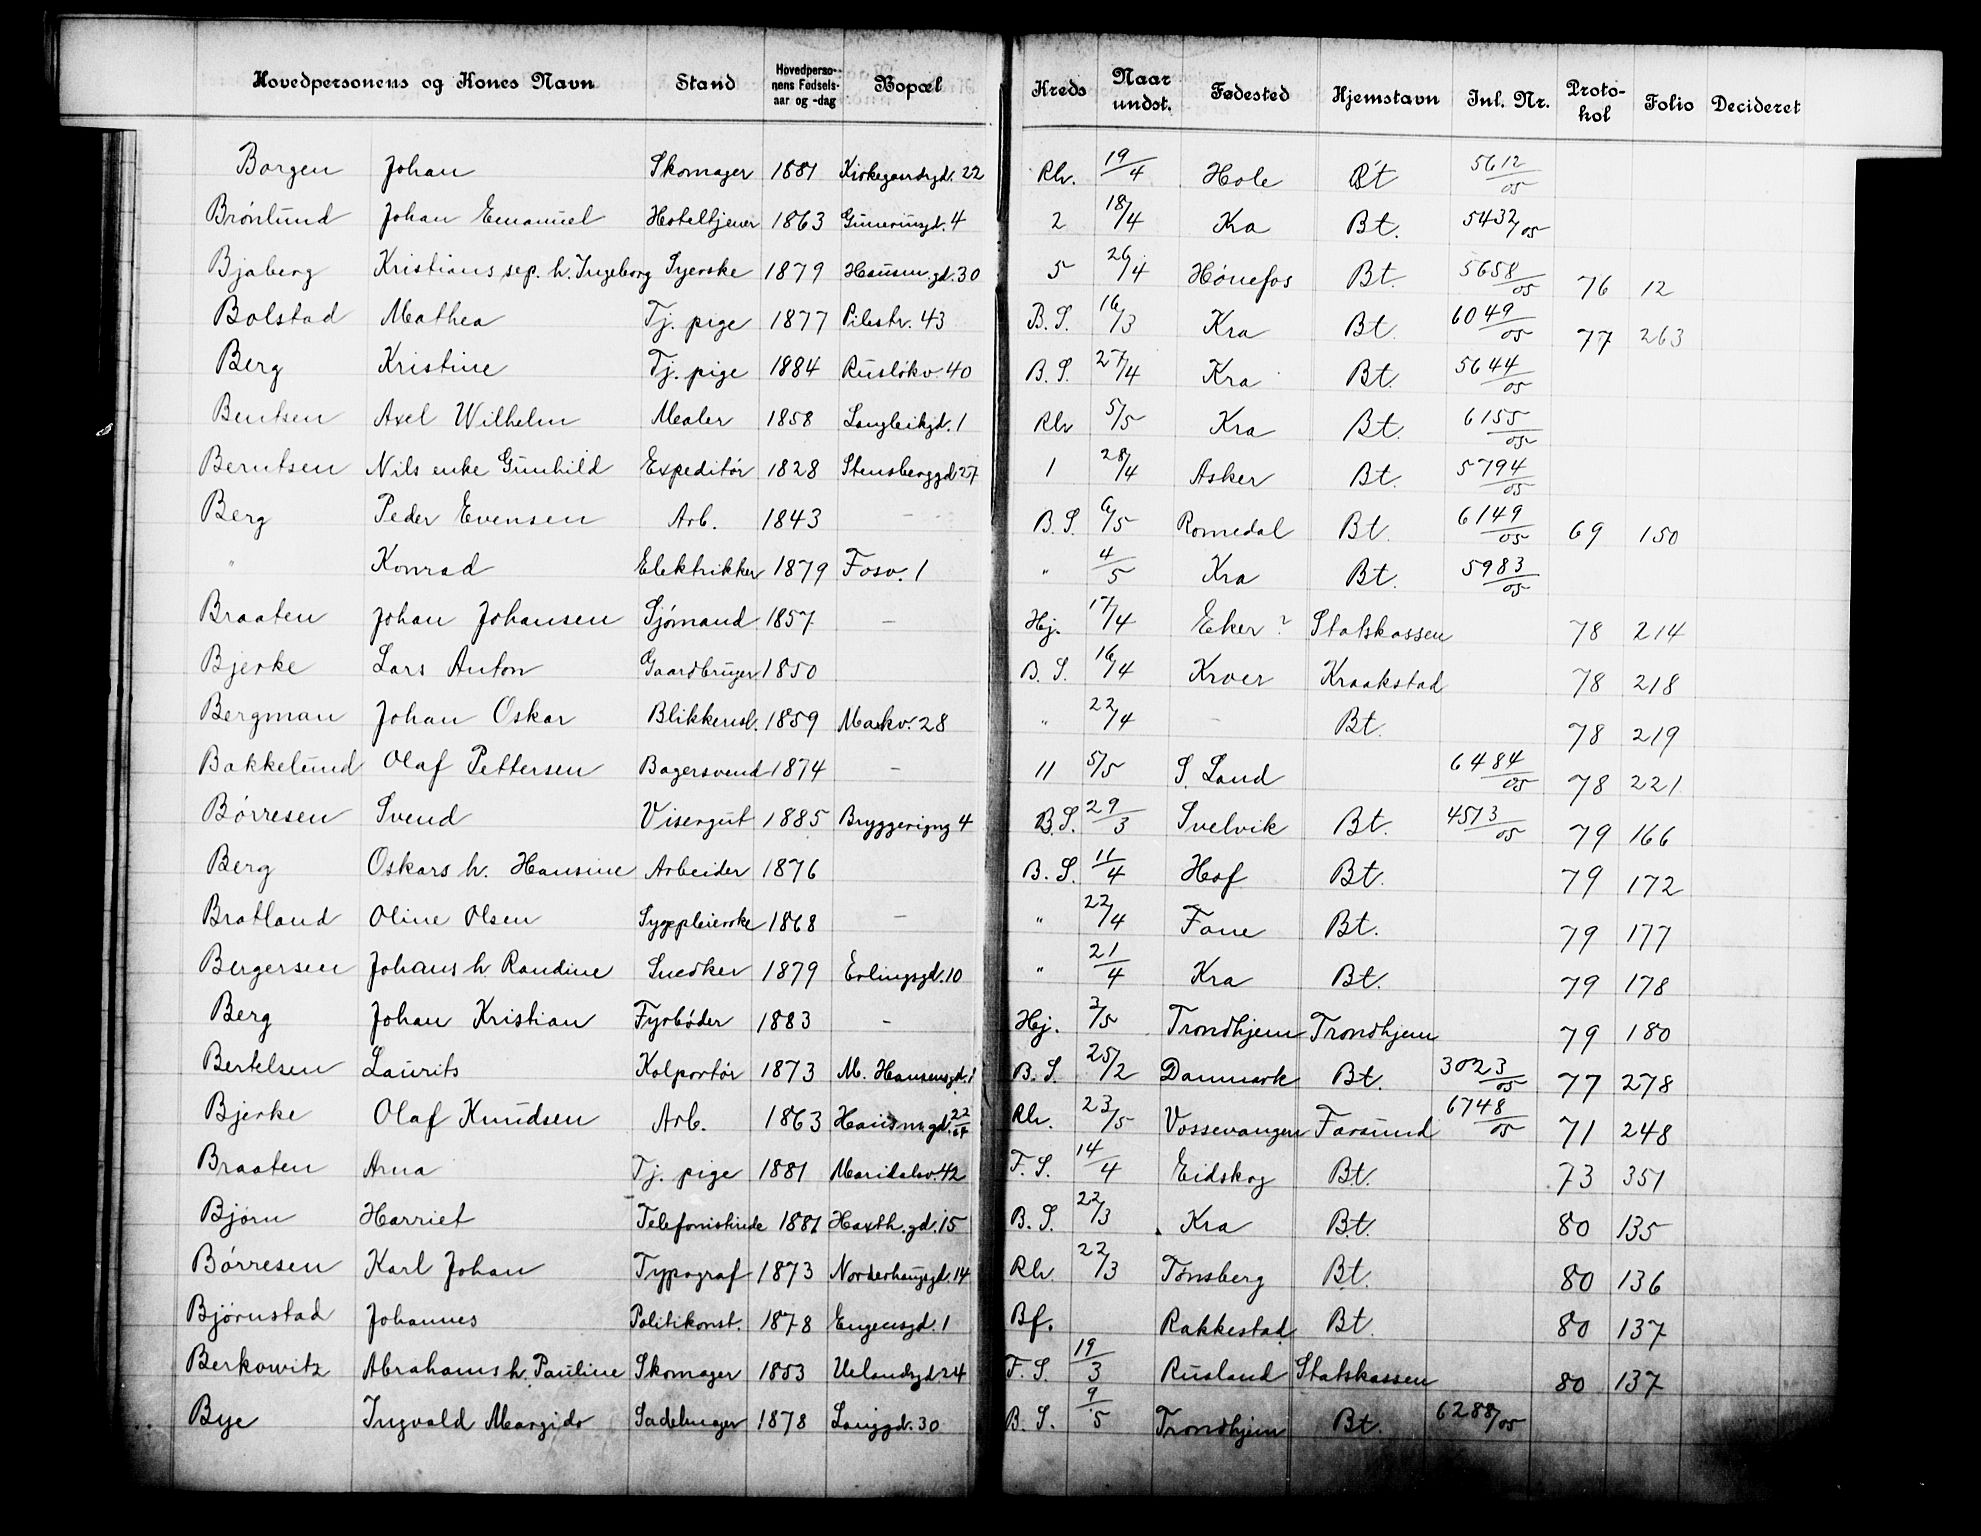 Hovedpersonens og Kones Navn Stand Hovedpersonens Fødselsaar og -dag Bopæl Kreds Naar undst. Fødested Hjemstavn Inl. Nr. Protokol Folio Decideret
Borgen Johan Skomager 1881 Kirkegaardsgd. 22 Rh. 19/4 Hole Bt 5612/05
Brönlund Johan Emanuel Hoteltjener 1863 Guneriusgd. 4 2 18/4 Kra Bt. 5432/05
Bjaberg Kristians sep. h. Ingeborg Syerske 1879 Hausm.gd. 30 5 26/4 Hönefos Bt. 5658/05 76 12
Bolstad Mathea Tj. pige 1877 Pilestr. 43 B. S. 16/3 Kra Bt. 6049/05 77 263
Berg Kristine Tj. pige 1884 Rusløkv. 40 B. S. 27/4 Kra Bt. 5644/05
Bentsen Axel Wilhelm Maler 1858 Langleikgd. 1 Rh 5/5 Kra Bt. 6155/05
Berntsen Nils enke Gunhild Expeditör 1828 Stensberggd 27 1 28/4 Asker Bt. 5794/05
Berg Peder Evensen Arb. 1843 — B. S. 6/5 Romedal Bt. 6149/05 69 150
" Konrad Elektrikker 1879 Fosv. 1 " 4/5 Kra Bt. 5983/05
Braaten Johan Johansen Sjömand 1857 — Hj. 17/4 Eker ? Statskassen 78 214
Bjerke Lars Anton Gaardbruger 1850 B. S. 16/4 Kroer Kraakstad 78 218
Bergman Johan Oskar Blikkensl. 1859 Markv. 28 " 22/4 - Bt. 78 219
Bakkelund Olaf Pettersen Bagersvend 1874 — 11 5/5 S. Land 6484/05 78 221
Börresen Svend Visergut 1885 Bryggerigng 4 B.S. 29/3 Svelvik Bt. 4513/05 79 166
Berg Oskars h. Hansine Arbeider 1876 B. S. 11/4 Hof Bt. 79 172
Bratland Oline Olsen Sygepleierske 1868 — " 22/4 Fane Bt. 79 177
Bergersen Johans h. Randine Snedker 1879 Erlingsgd. 10 " 21/4 Kra Bt. 79 178
Berg Johan Kristian Fyrböder 1883 - Hj. 3/5 Trondhjem Trondhjem 79 180
Bertelsen Laurits Kolportör 1873 M. Hansensgd. 1 B. S. 25/2 Danmark Bt. 3023/05 77 278
Bjerke Olaf Knudsen Arb. 1863 Hausmgd. Rh. 23/5 Vossevangen Farsund 6748/05 71 248
Braaten Arna Tj. pige 1881 Maridalsv. 42 F. S. 14/4 Eidskog Bt. 73 351
Björn Harriet Telefonistinde 1881 Haxth.gd. 15 B. S. 22/3 Kra Bt. 80 135
Börresen Karl Johan Typograf 1873 Norderhaugsgd. 14 Rh. 22/3 Tønsberg Bt. 80 136
Björnstad Johannes Politikonst. 1878 Engensgd. 1 Bf. Rakkestad Bt. 80 137
Berkowitz Abrahams h. Pauline Skomager 1853 Uelandsgd 24 F. S. 19/3 Rusland Statskassen 80 137
Bye Ingvald Margido Sadelmager 1878 Langgd. 30 B. S. 9/5 Trondhjem Bt. 6288/05